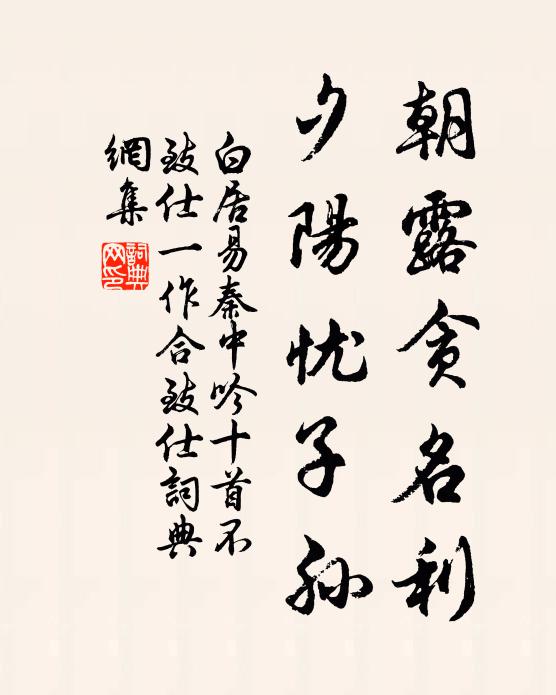 朝露贪名利
夕陽忧子孙
白居易秦中吟十首不
致仕一作合致仕詞典
網集
詞典
网印